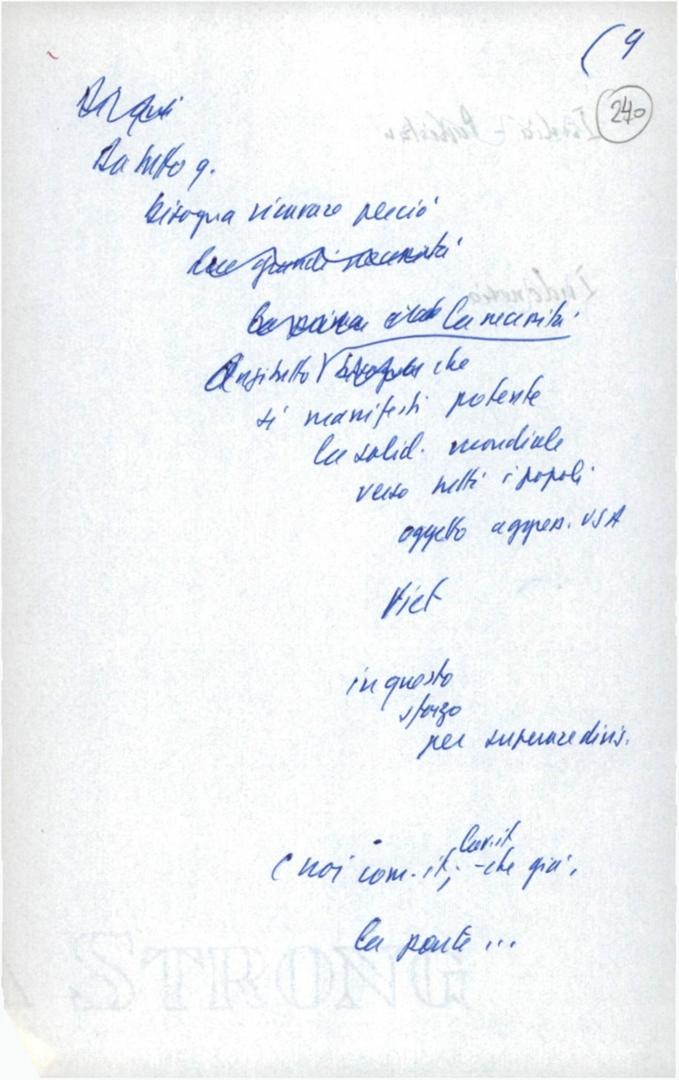 (9
240
Di qui
Da tutto q.
bisogna ricavare perciò
due grandi necessità
la causa
Anzitutto bisogna che
si manifesti potente
la solid. mondiale
verso tutti i popoli
oggetto aggres. USA
Viet
in questo
sforzo
per superare divis.
lav. it
( noi com. it; - che già,
la parte ...
STRONG